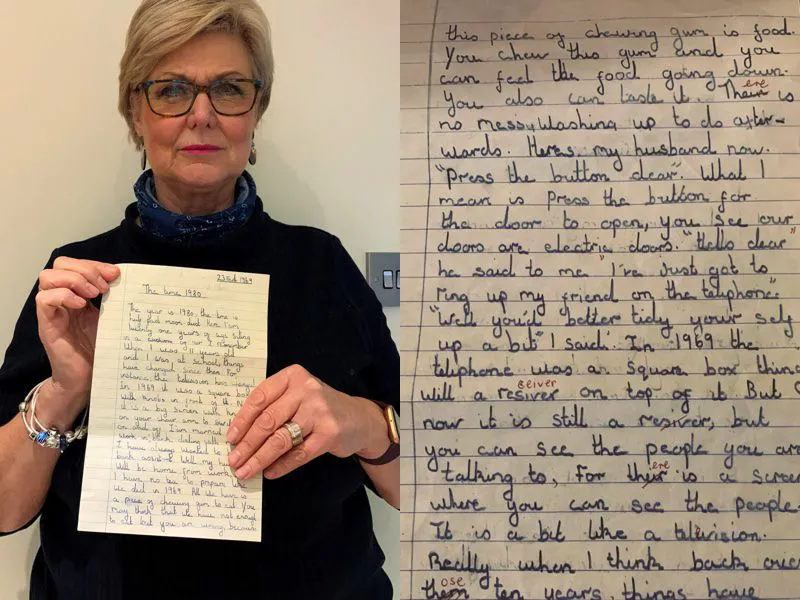 The time 1980
The year is 1980, the time is
half past
twenty one years of age sitting
in a cushion of air. I remember
When I was 11 years old
and I was at school, things
have changed since then. For
instance, the television has changed.
In 1969 it was a square box
with knobs in front of it.
it is a big screen with knobs
on your own arm to
on and off. I am married
work in bank dealing with
I have always wanted to
bank Well my
Will be home from work
I have no tea to prepare like
we did in 1969. All we have is
a piece of chewing gum to eat. You
may think that we have not enough
to eat but you are wrong, because
this piece of chewing gum is food.
You chew this gum and you
can feel the food going down.
ere
You also can taste it. Their is
no messy washing up to do after-
wards. Heres, my husband now.
"Press the button dear". What I
mean is press the button for
the door to open, you see our
doors are electric doors. "Hello dear"
he said to me "I've just got to
ring up my friend on the telephone".
"Well you'd better tidy your self
up a bit" I said. In 1969 the
telephone was an square box thing
ceiver
will a resiver on top of it But
now it is still a resiver, but
you can see the people you are
ere
talking to, For their is a screen
where you can see the people.
It is a bit like a telivision.
Really when I think back over
ose
them ten years, things have